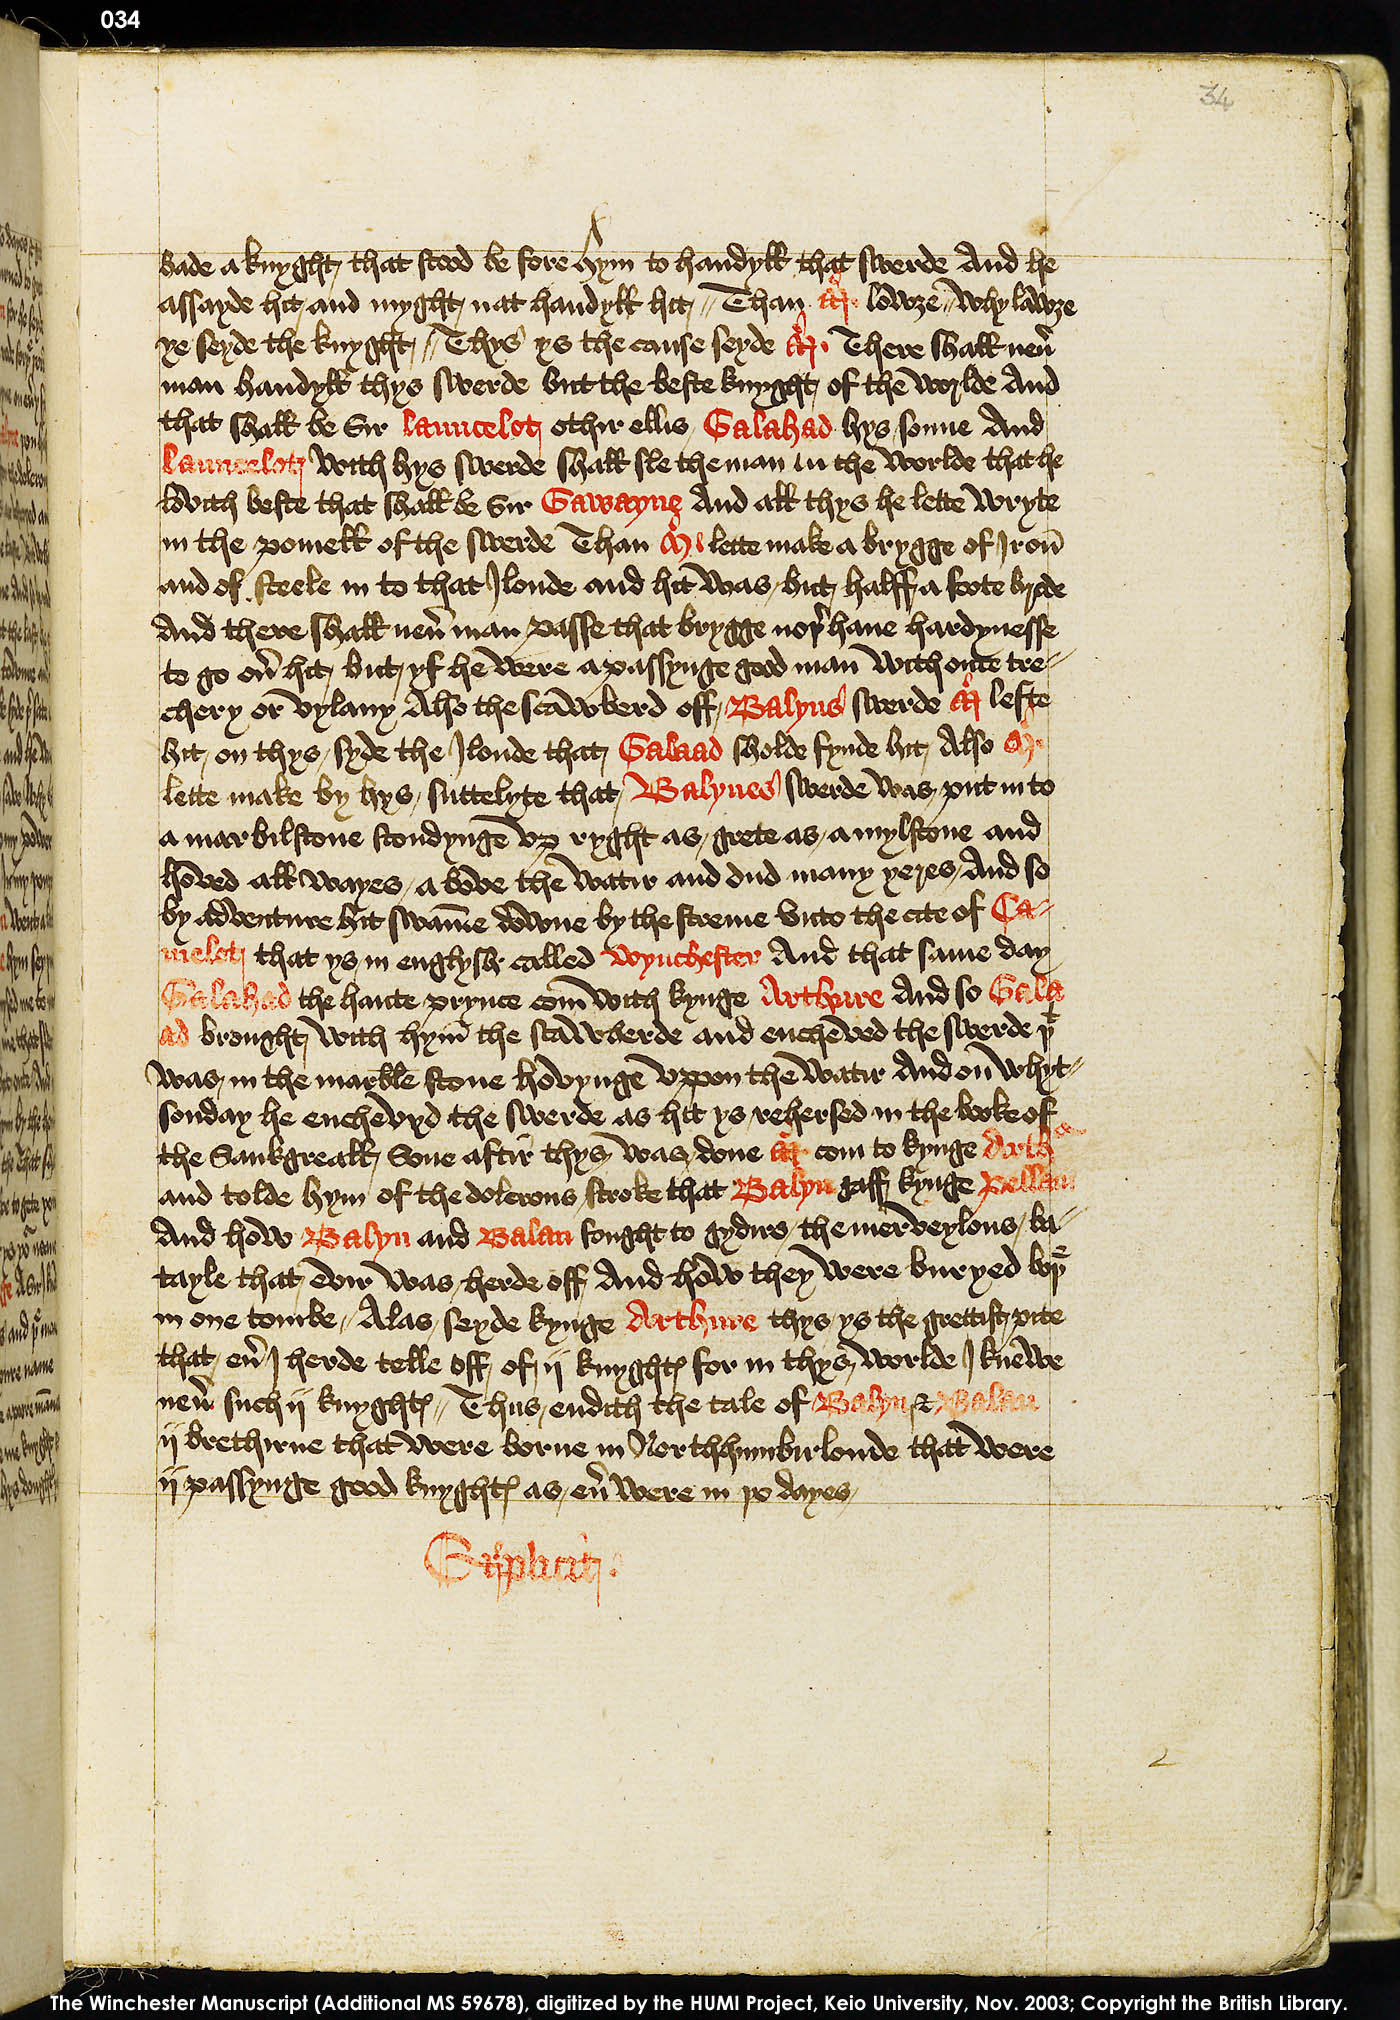 034
34
bade a knyght that stood be fore hym to handyll that swerde And he
assayde hit and myght nat handyll hit // Than M lowʒe // why lawʒe
ye seyde the knyght // Thys ys the cause seyde M. There shall neuer
man handyll thys swerde but the beste knyght of the worlde And
that shall be Sir Launcelot othir ellis Galahad hys sonne And
Launcelot with hys swerde shall sle the man in the worlde that he
lovith beste that shall be Sir Gawayne And all thys he lette wryte
in the pomell of the swerde Than M lette make a brygge of Iron
and of steele in to that Ilonde and hit was but halff a foote brode
And there shall neuer man passe that brygge noþer haue hardynesse
to go ouer hit but yf he were a passynge good man with oute tre//
chery or vylany Also the scawberd off Balyns swerde M lefte
hit on thys syde the Ilonde that Galaad sholde fynde hit Also M.
lette make by hys suttelyte that Balynes swerde was put in to
a marbil stone stondynge vp ryght as grete as a mylstone and
hoved all wayes a bove the watir and dud many yeres And so
by adventure hit swamme downe by the streme vnto the cite of Ca//
melot that ys in englysh called Wynchester And that same day
Galahad the haute prynce com with kynge Arthure And so Gala
ad brought with hym the scawberde and encheved the swerde þt
was in the marble stone hovynge vppon the watir And on whyt//
sonday he enchevyd the swerde as hit ys rehersed in the booke of
the Sankgreall Sone aftir thys was done M com to kynge Arthur
and tolde hym of the dolerous stroke that Balyn gaff kynge Pellam
And how Balyn and Balan fought to gydirs the merveylous ba//
tayle that evir was herde off And how they were buryed boþe
in one tombe // Alas seyde kynge Arthure thys ys the grettist pite
that euer I herde telle off of ij knyghtes for in thys worlde I knewe
neuer such ij knyghtes // Thus endith the tale of Balyn & Balan
ij brethirne that were borne in Northhumbirlonde that were
ij passynge good knyghtes as euer were in þo dayes
Explicit.
2
The Winchester Manuscript (Additional MS 59678), digitized by the HUMI Project, Keio University, Nov. 2003; Copyright the British Library.